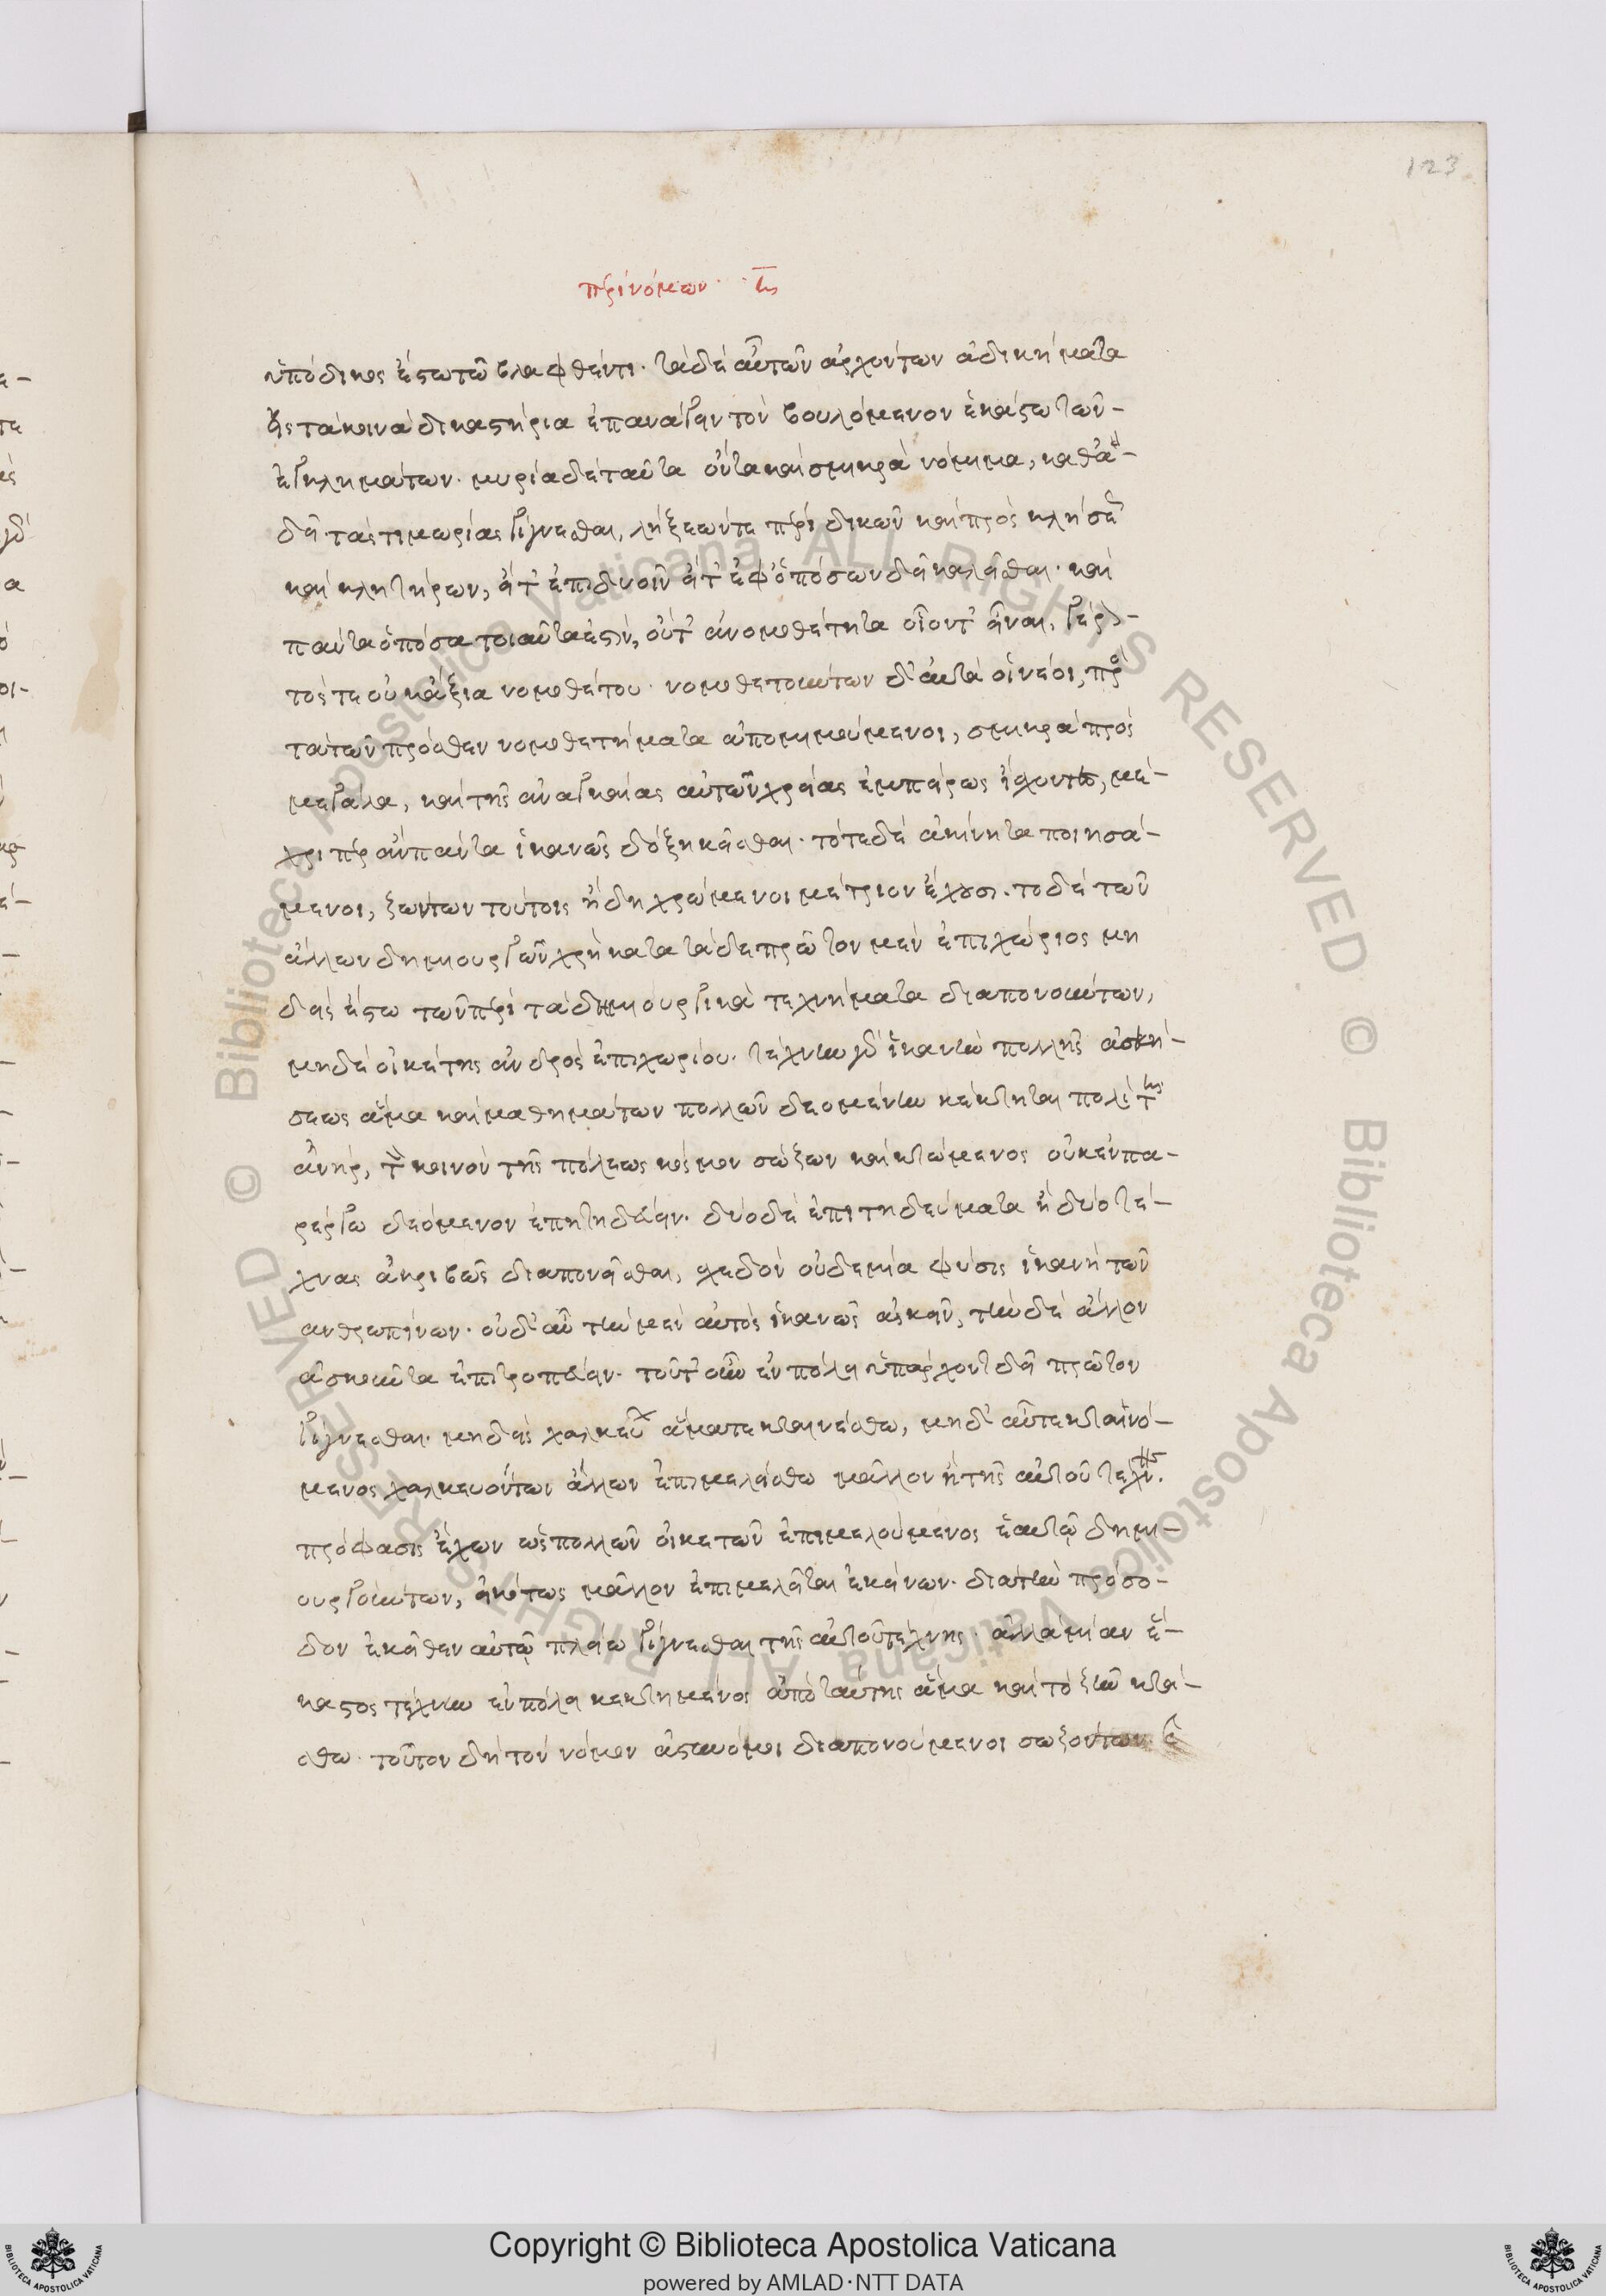 123
περὶ νόμων η
ὑπόδικος ἔστω τῷ βλαφθέντι· τὰ δὲ αὖ τῶν ἀρχόντων ἀδικήματα
εἰς τὰ κοινὰ δικαστήρια ἐπανάγειν τὸν βουλόμενον ἑκάστω τῶν
ἐγκλημάτων. μυρία δὲ ταῦτα ὄντα καὶ σμικρὰ νόμιμα, καθ' ἃ
δεῖ τὰς τιμωρίας γίγνεσθαι, λήξεών τε πέρι δικῶν καὶ προσκλήσεων
καὶ κλητήρων, εἴτ' ἐπὶ δυοῖν εἴτ' ἐφ' ὁπόσων δεῖ καλεῖσθαι· καὶ
πάντα ὁπόσα τοιαῦτα ἐστὶν, οὔτ' ἀνομοθέτητα οἷόν τ' εἶναι, γέρον-
τός τε οὐκ ἄξια νομοθέτου· νομοθετούντων δ' αὐτὰ οἱ νέοι, πρὸς
τὰ τῶν πρόσθεν νομοθετήματα ἀπομιμούμενοι, σμικρὰ πρὸς
μεγάλα, καὶ τῆς ἀναγκαίας αὐτῶν χρείας ἐμπείρως ἴσχοντες, μέ-
χρι περ ἂν πάντα ἱκανῶς δόξῃ κεῖσθαι· τότε δὲ ἀκίνητα ποιησά-
μενοι, ζώντων τούτοις ἤδη χρώμενοι μέτριον ἔχουσι. τὸ δὲ τῶν
ἄλλων δημιουργῶν χρὴ κατὰ τάδε πρῶτον μὲν ἐπιχώριος μη
δεὶς ἔστω τῶν περὶ τὰ δημιουργικὰ τεχνήματα διαπονούντων,
μηδὲ οἰκέτης ἀνδρὸς ἐπιχωρίου· τέχνην γὰρ ἱκανὴν πολλῆς ἀσκή-
σεως ἅμα καὶ μαθημάτων πολλῶν δεομένην κέκτηται πολίτης
ἀνὴρ, τὸν κοινὸν τῆς πόλεως κόσμον σώζων καὶ κτώμενος οὐκ ἐν πα-
ρέργῳ δεόμενον ἐπιτηδεύειν· δύο δὲ ἐπιτηδεύματα ἢ δύο τέ-
χνας ἀκριβῶς διαπονεῖσθαι, σχεδὸν οὐδεμία φύσις ἱκανὴ τῶν
ἀνθρωπίνων· οὐδ' αὖ τὴν μὲν αὐτὸς ἱκανῶς ἀσκεῖν, τὴν δὲ ἄλλον
ἀσκοῦντα ἐπιτροπεύειν· τοῦτ' οὖν ἐν πόλει ὑπάρχον δεῖ πρῶτον
γίγνεσθαι· μηδεὶς χαλκεύων ἅμα τεκταινέσθω, μηδ' αὖ τεκταινό-
μενος χαλκευόντων ἄλλων ἐπιμελείσθω μᾶλλον ἢ τῆς αὑτοῦ τέχνης.
πρόφασιν ἔχων ὡς πολλῶν οἰκετῶν ἐπιμελούμενος ἑαυτῷ δημι-
ουργούντων, εἰκότως μᾶλλον ἐπιμελεῖται ἐκείνων· διὰ τὸ τὴν πρόσο-
δον ἐκεῖθεν αὐτῷ πλείω γίγνεσθαι τῆς αὑτοῦ τέχνης· ἀλλὰ μίαν ἕ-
καστος τέχνην ἐν πόλει κεκτημένος ἀπὸ ταύτης ἅμα καὶ τὸ ζῆν κτά-
σθω· τοῦτον δὴ τὸν νόμον ἀστυνόμοι διαπονούμενοι σωζόντων
Copyright © Biblioteca Apostolica Vaticana
powered by AMLAD·NTT DATA